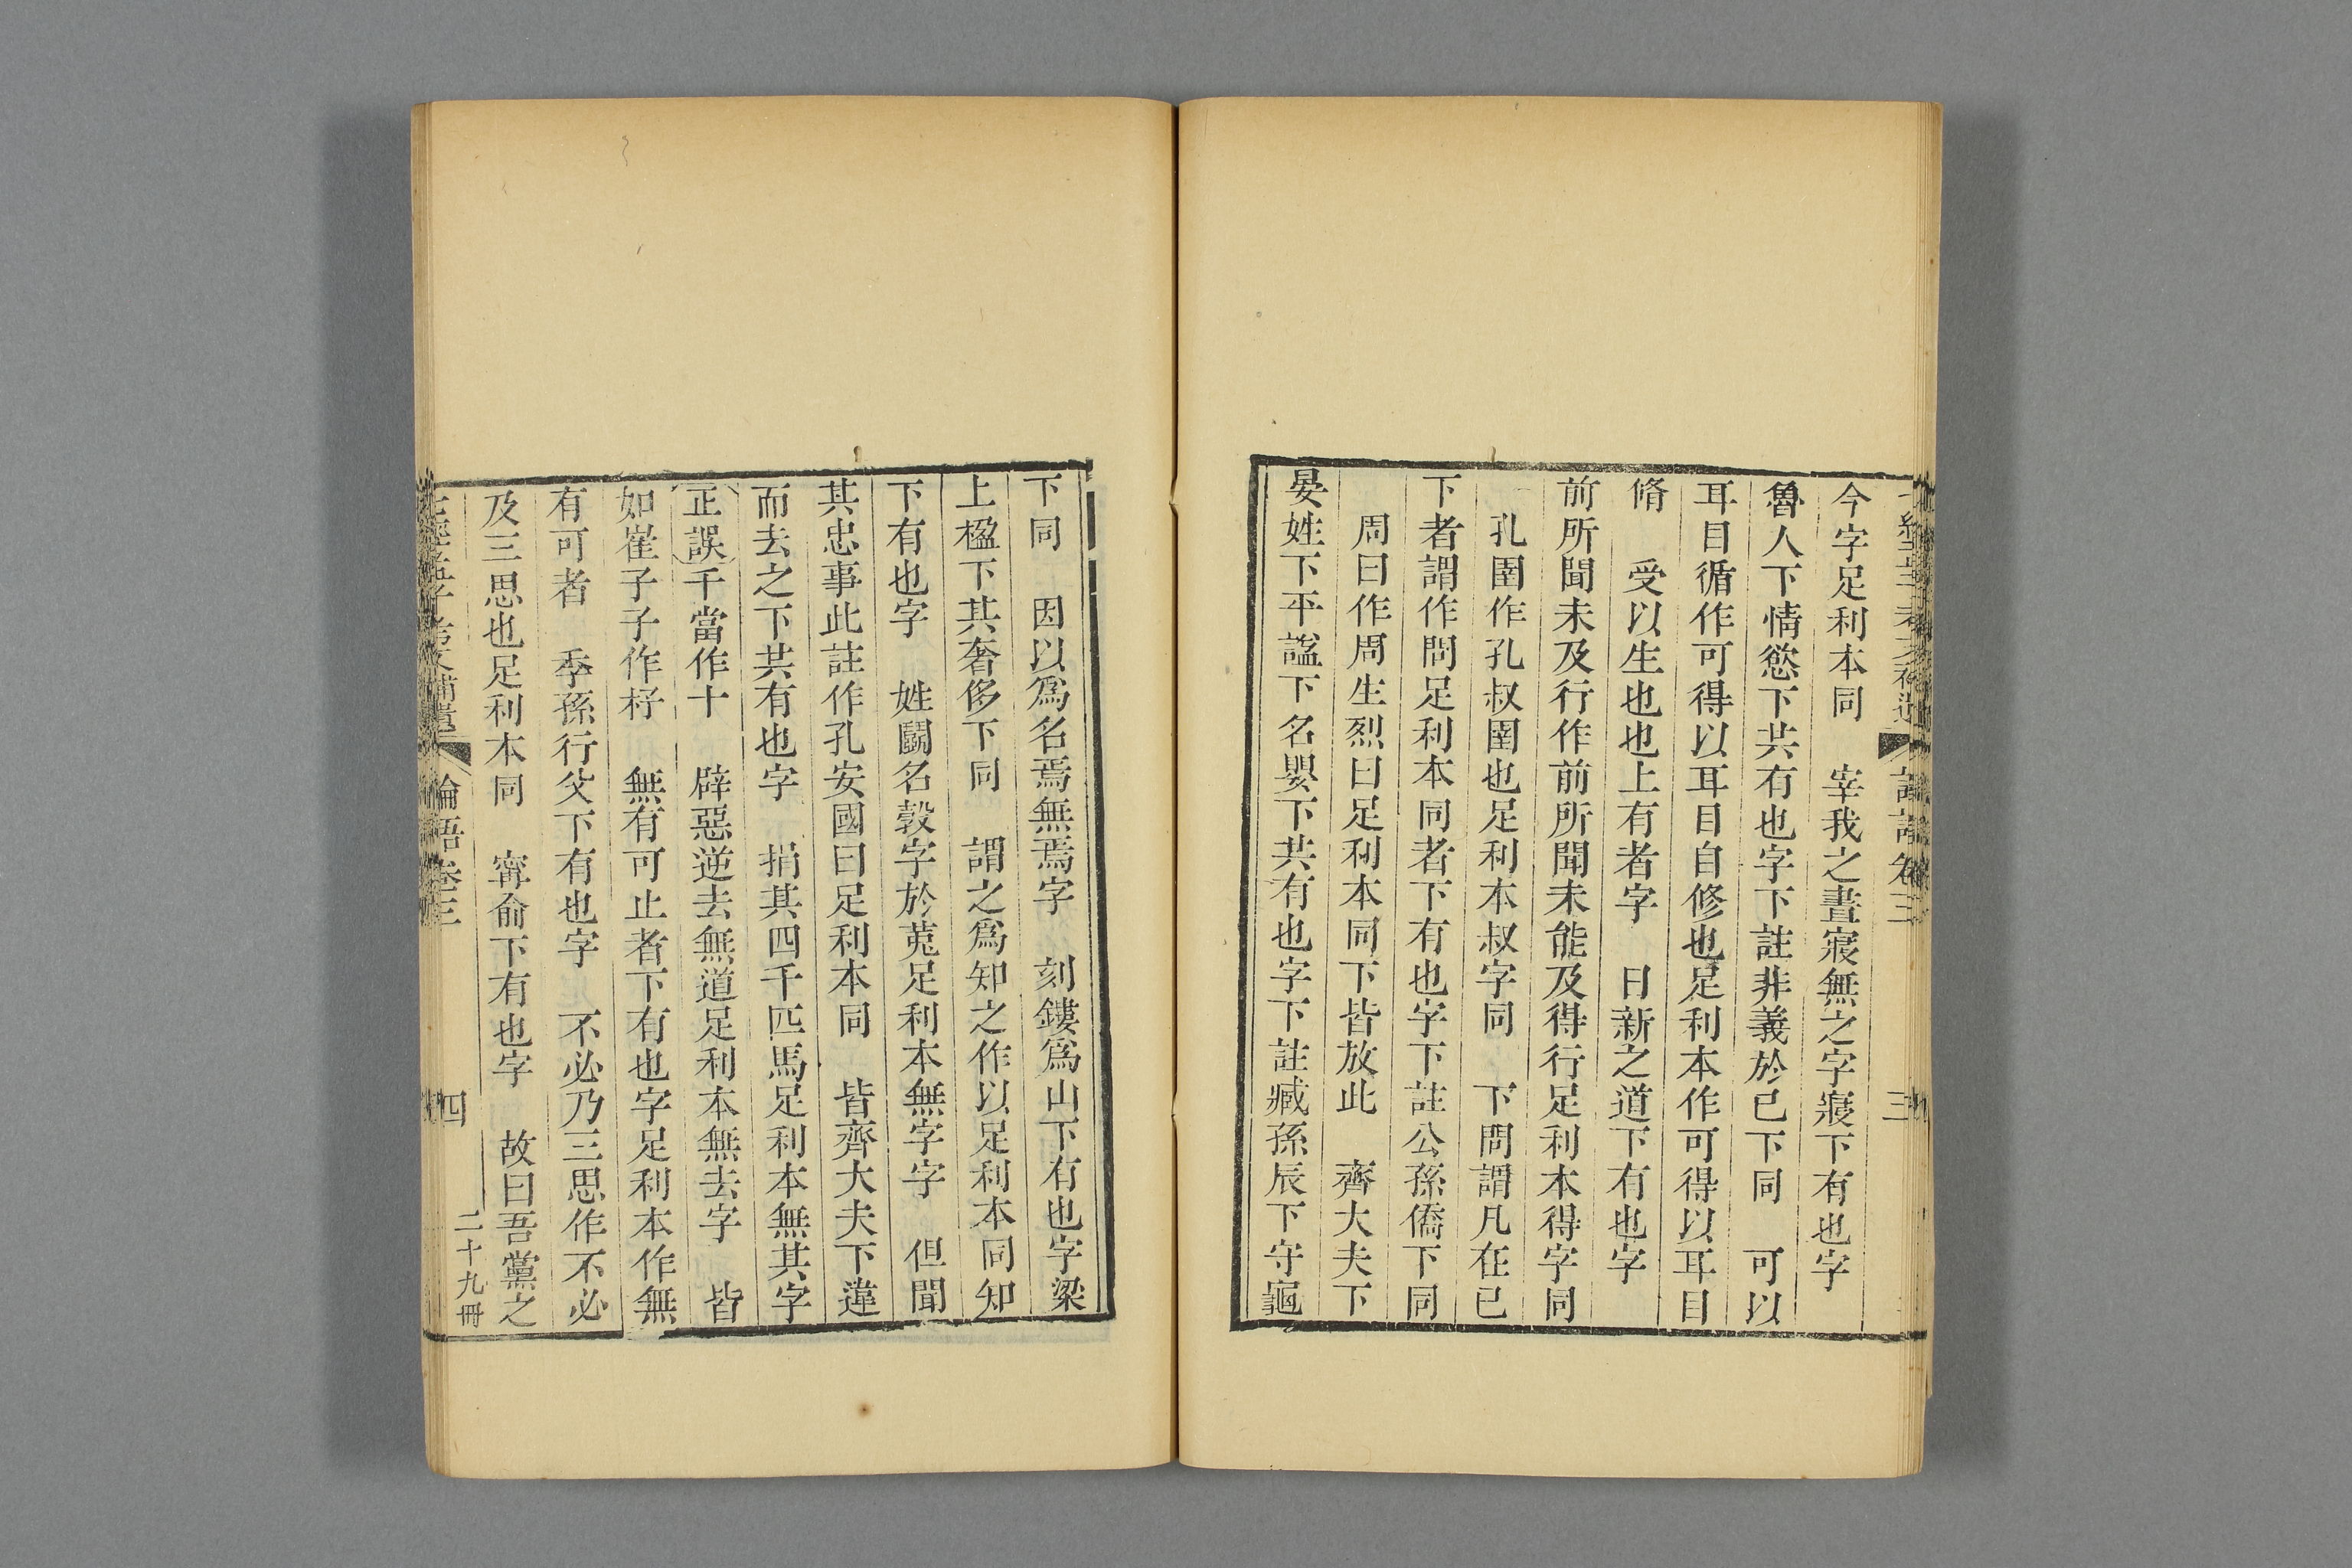 今字足利本同　宰我之晝寢無之字寢下有也字
魯人下情慾下共有也字下註非義於己下同　可以
耳目循作可得以耳目自修也足利本作可得以耳目
脩　受以生也也上有者字　日新之道下有也字
前所聞未及行作前所聞未能及得行足利本得字同
孔圉作孔叔圉也足利本叔字同　下問謂凡在己
下者謂作問足利本同者下有也字下註公孫僑下同
周曰作周生烈曰足利本同下皆放此　齊大夫下
晏姓下平謚下名嬰下共有也字下註臧孫辰下守龜
論語卷三
三
下同　因以爲名焉無焉字　刻鏤爲山下有也字梁
上楹下其奢侈下同　謂之爲知之作以足利本同知
下有也字　姓鬭名穀字於菟足利本無字字　但聞
其忠事此註作孔安國曰足利本同　皆齊大夫下違
而去之下共有也字　捐其四千匹馬足利本無其字
正誤千當作十　辟惡逆去無道足利本無去字　皆
如崔子子作杼　無有可止者下有也字足利本作無
有可者　季孫行父下有也字　不必乃三思作不必
及三思也足利本同　甯俞下有也字　故曰吾黨之
七經孟子考文補遺　論語卷三
四
二十九冊